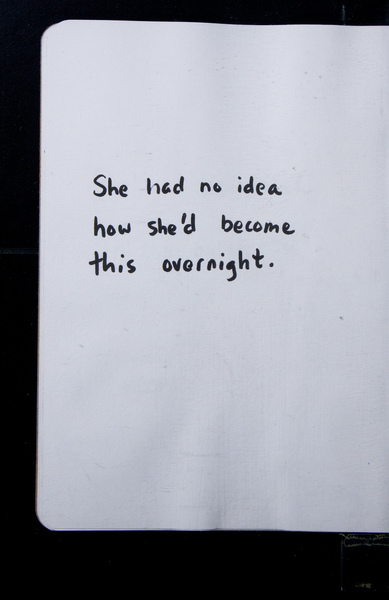 She had no idea
how she'd become
this overnight.